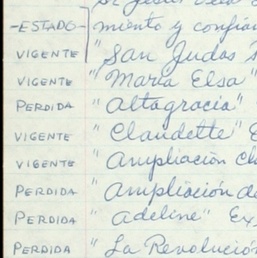 -ESTADO- miento y confian
VIGENTE "San Judas
VIGENTE "Maria Elsa"
PERDIDA "Altagracia"
VIGENTE "Claudette" E
VIGENTE "Ampliación Cl
PERDIDA "Ampliación de
PERDIDA "Adeline" Ex
PERDIDA "La Revolución